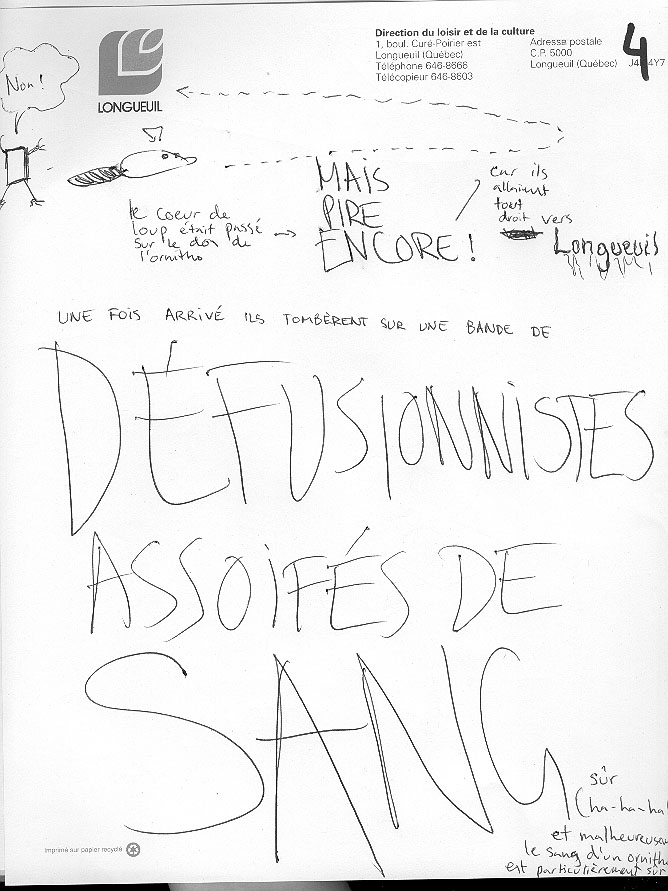 Direction du loisir et de la culture
1, boul. Curé-Poirier est
Longueuil (Québec)
Téléphone 646-8666
Télécopieur 646-8603
Adresse postale
C.P. 5000
Longueuil (Québec) J4 4Y7
4
LONGUEUIL
Non !
le coeur de
loup était passé
sur le dos de
l'ornitho
MAIS
PIRE
ENCORE !
car ils
allaient
tout
droit vers
Longueuil
UNE FOIS ARRIVÉ ILS TOMBÈRENT SUR UNE BANDE DE
DÉFUSIONNISTES
ASSOIFÉS DE
SANG
sûr
(ha-ha-ha
et malheureuse
le sang d'un ornitho
est particulièrement sûr
Imprimé sur papier recyclé